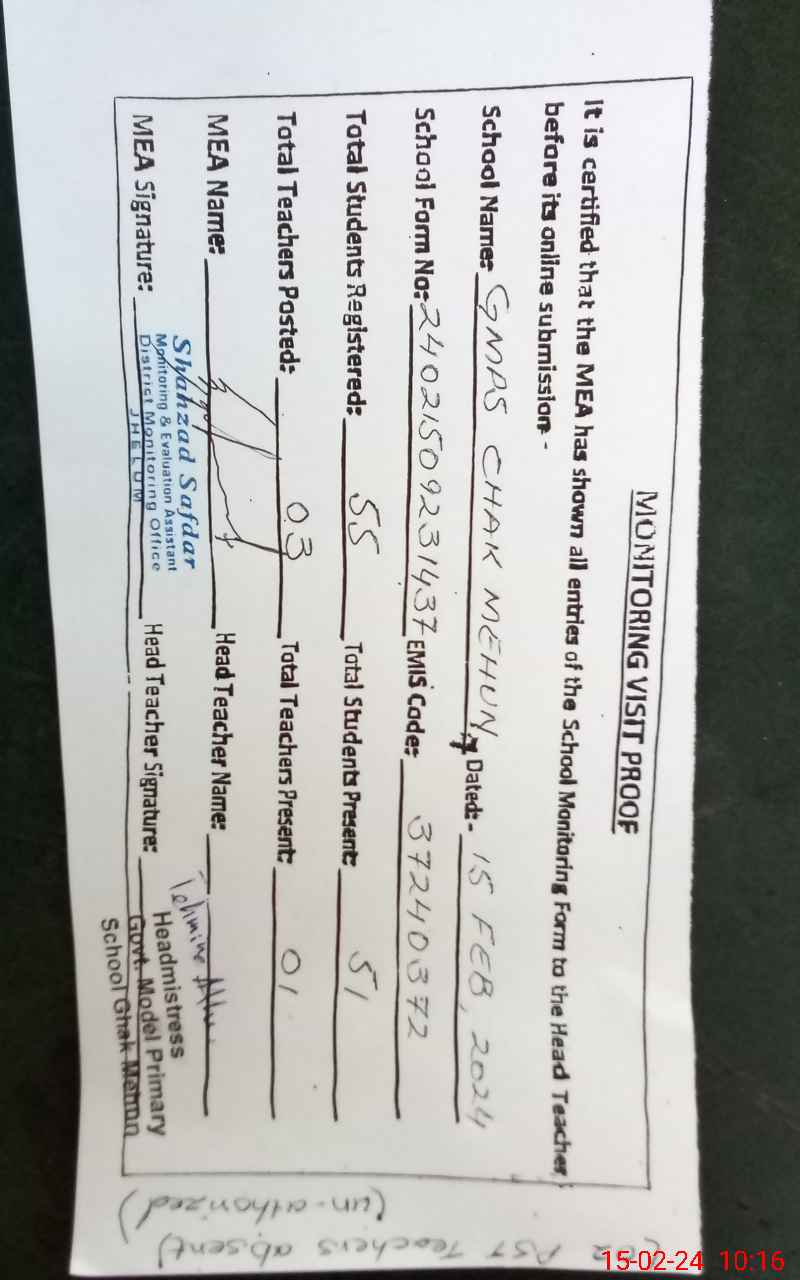 MONITORING VISIT PROOF
It is certified that the MEA has shown all entries of the School Monitoring Form to the Head Teacher
before its online submission-
School Name: GMPS CHAK MEHUN Dated:- 15 FEB, 2024
School Form No: 24021509231437 EMIS Code: 37240372
Total Students Registered: 55 Total Students Present: 51
Total Teachers Posted: 03 Total Teachers Present: 01
MEA Name: Head Teacher Name:
Shahzad Safdar
Monitoring & Evaluation Assistant
District Monitoring Office
JHELUM
MEA Signature: Head Teacher Signature:
Headmistress
Govt. Model Primary
School Chak Mehun
PST Teachers absent)
(un-athorized)
15-02-24 10:16